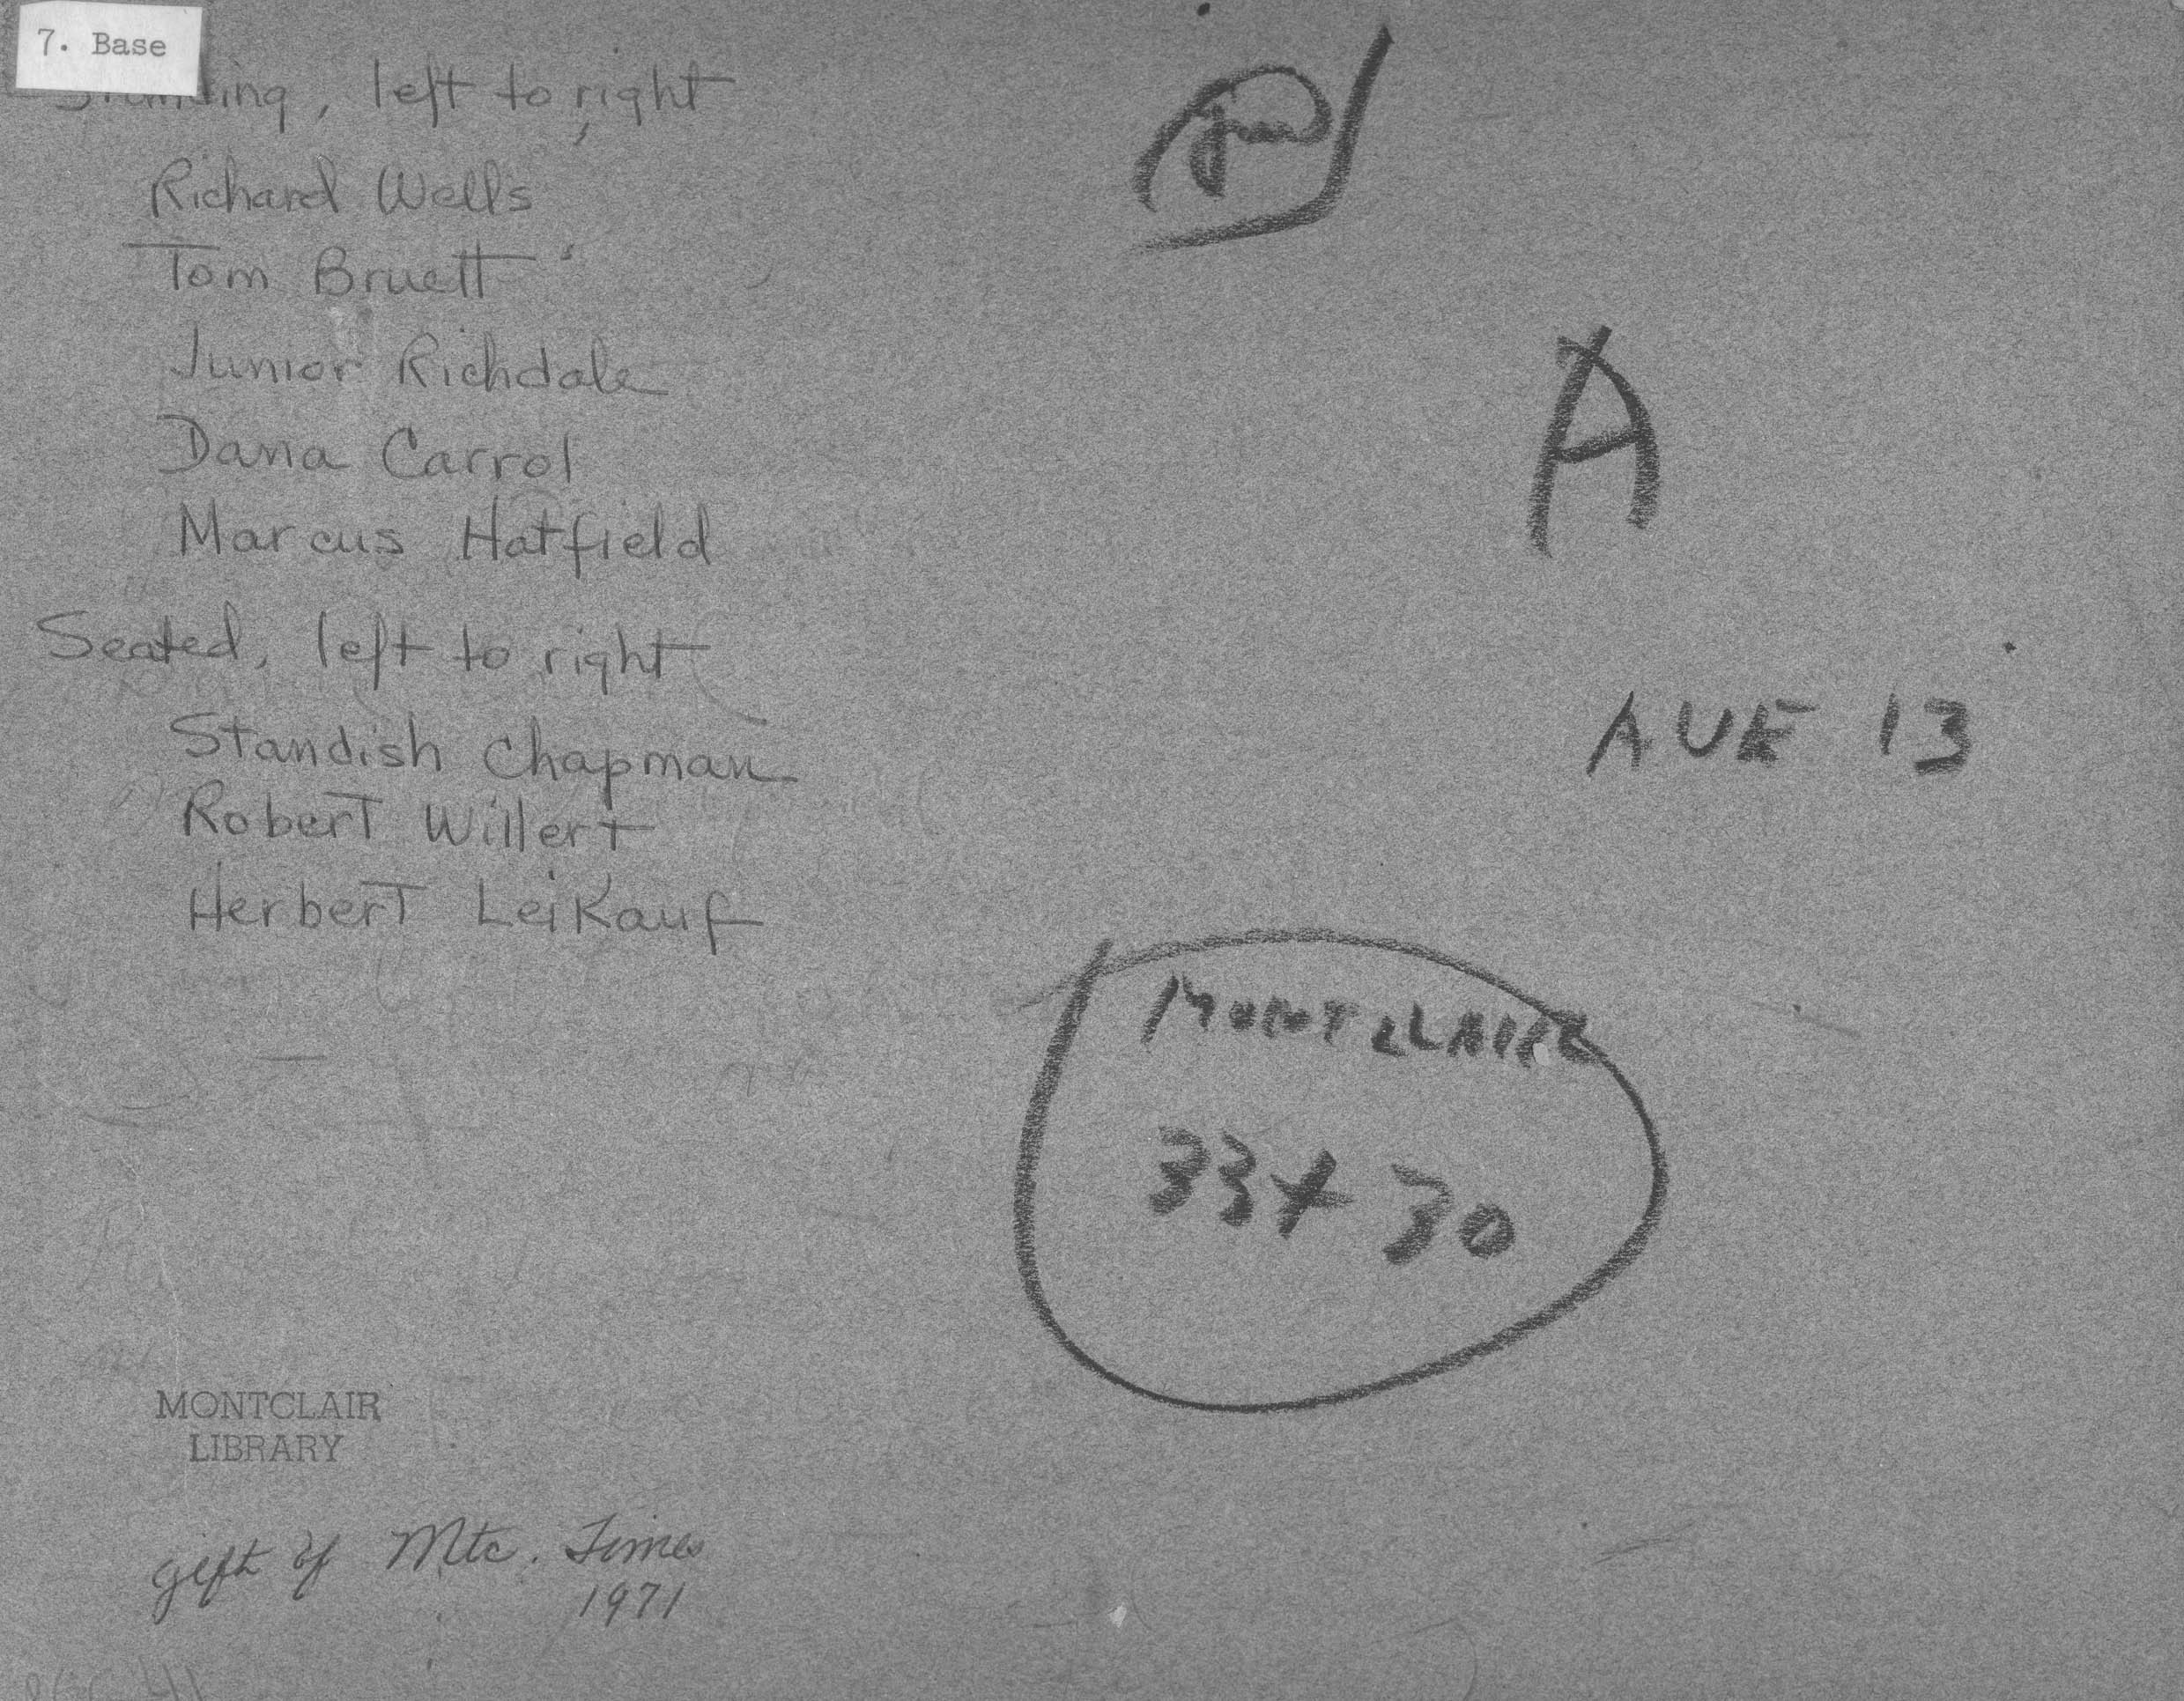 7. Base
Standing, left to right
Richard Wells
Tom Bruett
Junior Richdale
Dana Carrol
Marcus Hatfield
Seated, left to right
Standish Chapman
Robert Willert
Herbert Leikauf
A
AUE 13
MONTCLAIR
33x30
MONTCLAIR
LIBRARY
gift of Mtc. Times
1971